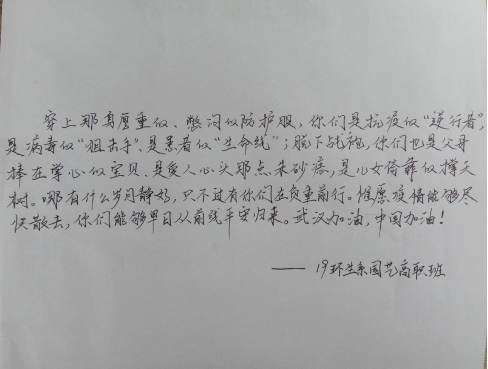 穿上那身厚重的、憋闷的防护服，你们是抗疫的“逆行者”，
是病毒的“狙击手”、是患者的“生命线”；脱下战袍，你们也是父母
捧在掌心的宝贝、是爱人心头那点朱砂痣，是儿女倚靠的撑天
树。哪有什么岁月静好，只不过有你们在负重前行。惟愿疫情能够尽
快散去，你们能够早日从前线平安归来。武汉加油，中国加油！
——19环生系园艺高职班